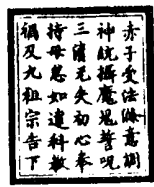 赤子受法意
神統攝魔鬼誓咒
三清无失初心奉
持毋怠如違科教
禍及九祖宗告下